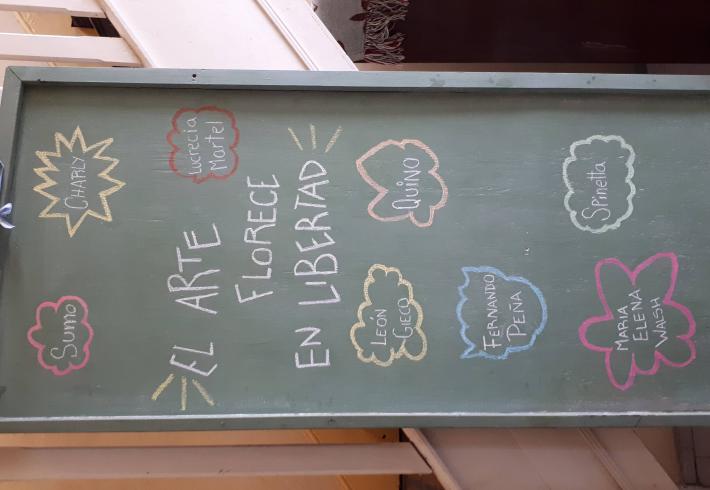 Sumo
CHARLY
Lucrecia
Martel
EL ARTE
FLORECE
EN LIBERTAD
LEÓN
GIECO
QUINO
FERNANDO
PEÑA
Spinetta
MARIA
ELENA
WALSH